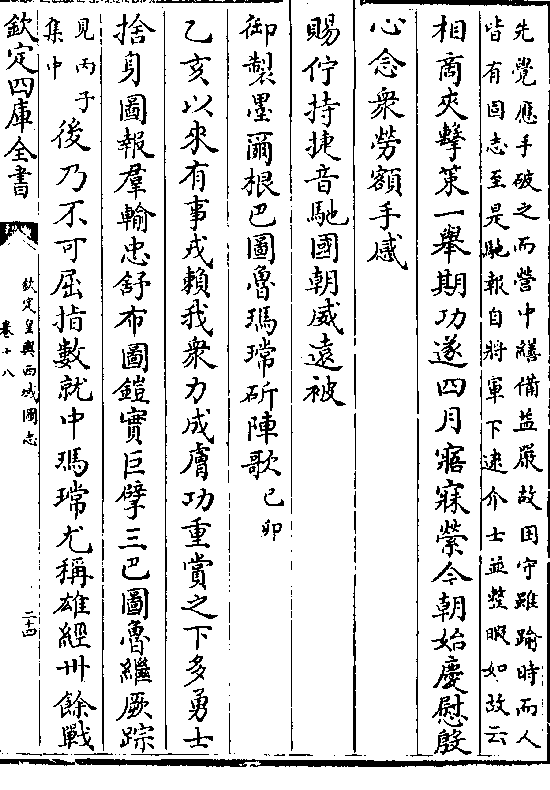 先覺應手破之而營中繕備益嚴故困守雖踰時而人
皆有固志至是馳報自將軍下逮介士並整暇如故云
相商夾擊策一舉期功遂四月寤寐縈今朝始慶慰殷
心念衆勞額手感
賜佇持捷音馳國朝威遠被
御製墨爾根巴圖魯瑪瑺斫陣歌己卯
乙亥以來有事戎賴我衆力成膚功重賞之下多勇士
捨身圖報羣輸忠舒布圖鎧實巨擘三巴圖魯繼厥踪
見丙子
集中
後乃不可屈指數就中瑪瑺尤稱雄經卅餘戰
欽定四庫全書
欽定皇輿西域圖志
卷十八
二十四